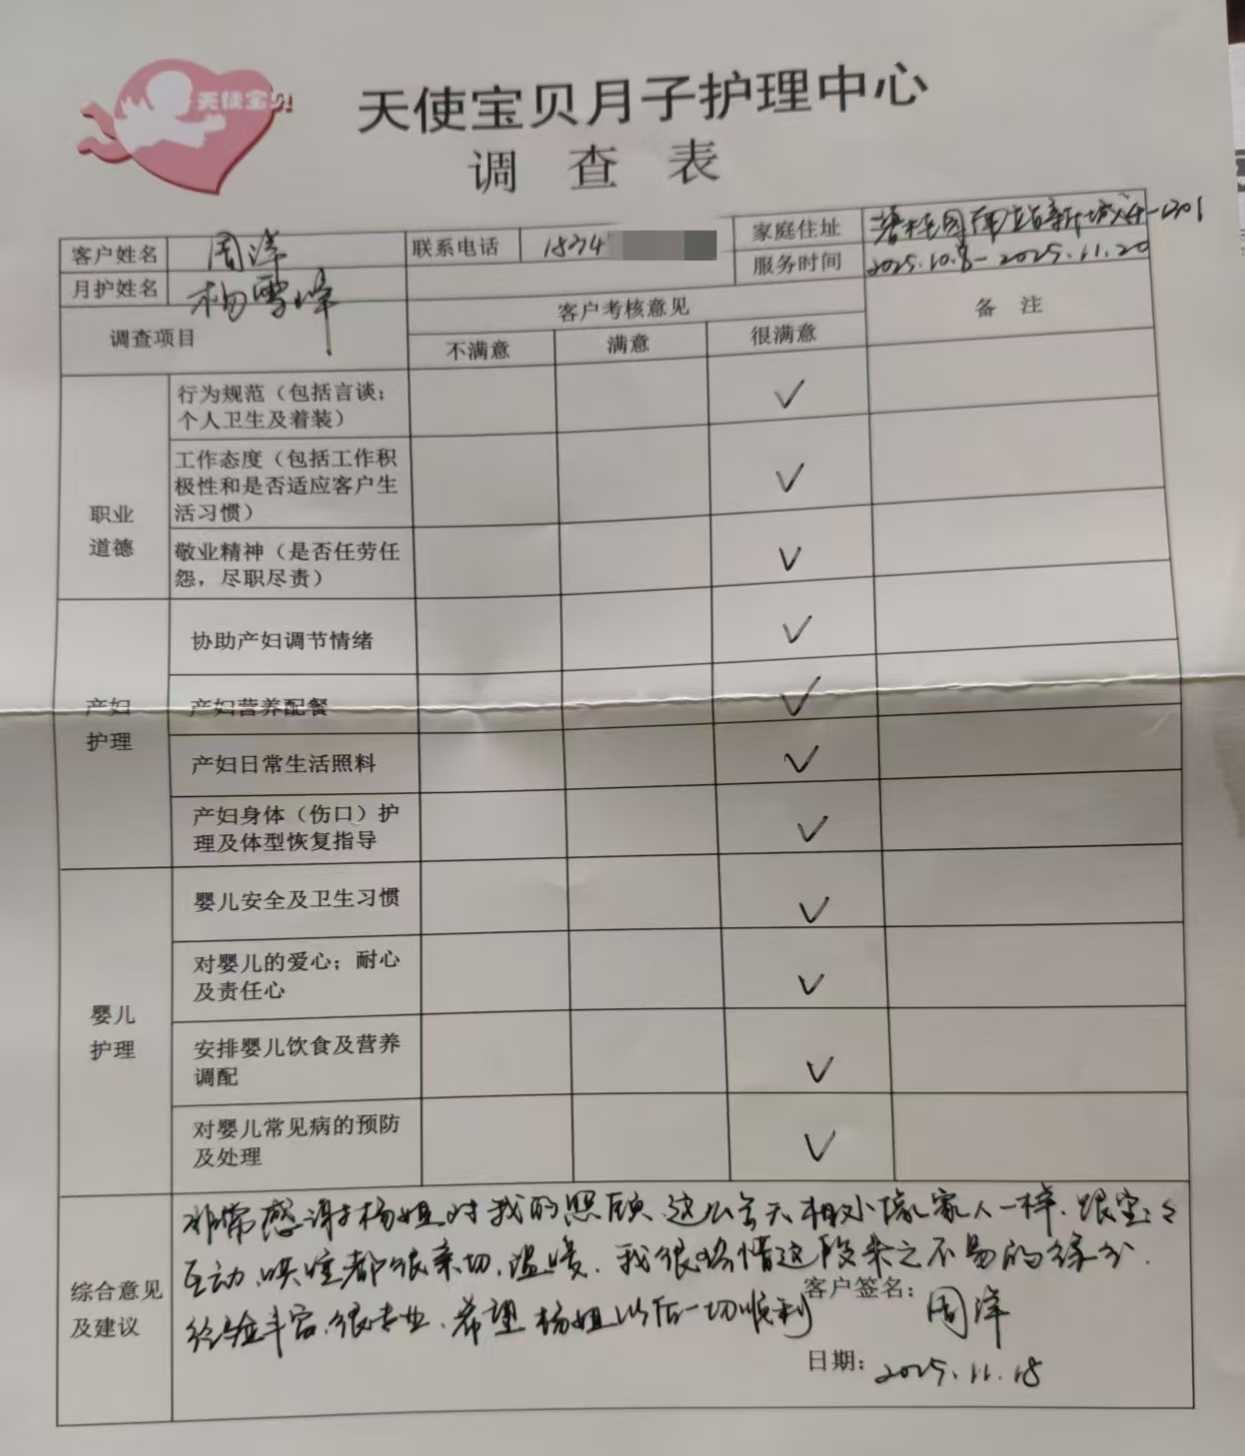 天使宝贝
天使宝贝月子护理中心
调 查 表
客户姓名 周洋 联系电话 1874 家庭住址 碧桂园
月护姓名 杨雪 服务时间 2025.10.8-2025.11.20
调查项目 客户考核意见 备 注
不满意 满意 很满意
职业
道德
行为规范（包括言谈；
个人卫生及着装） ✓
工作态度（包括工作积
极性和是否适应客户生
活习惯） ✓
敬业精神（是否任劳任
怨，尽职尽责） ✓
产妇
护理
协助产妇调节情绪 ✓
产妇营养配餐 ✓
产妇日常生活照料 ✓
产妇身体（伤口）护
理及体型恢复指导 ✓
婴儿
护理
婴儿安全及卫生习惯 ✓
对婴儿的爱心；耐心
及责任心 ✓
安排婴儿饮食及营养
调配 ✓
对婴儿常见病的预防
及处理 ✓
综合意见
及建议
非常感谢杨姐对我的照顾 这么多天相处像家人一样，跟宝宝
互动、哄睡都很亲切，温暖，我很珍惜这段来之不易的缘分.
经验丰富，很专业，希望杨姐以后一切顺利
客户签名：周洋
日期：2025.11.18